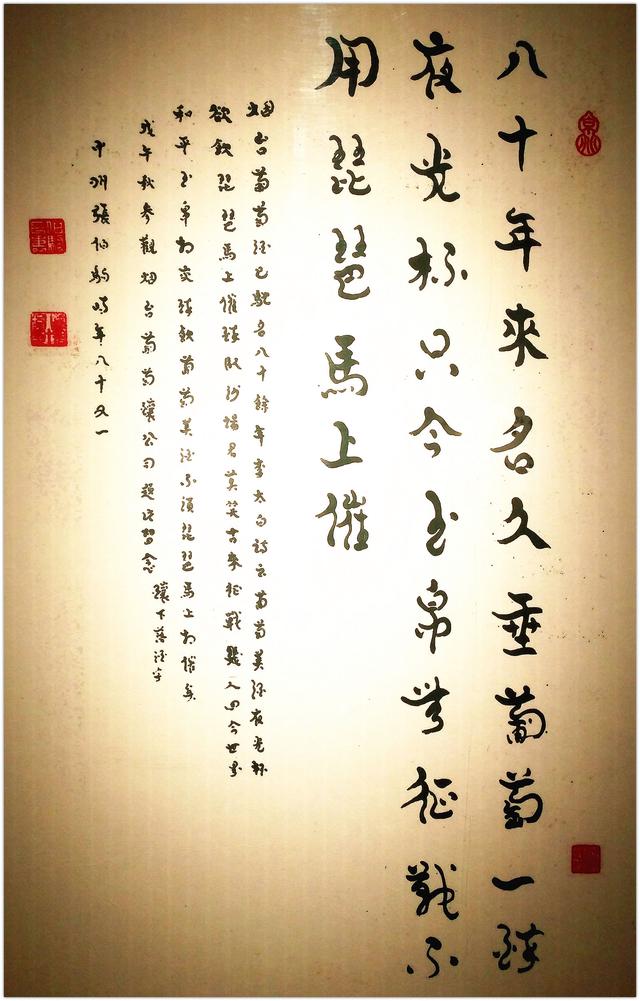 八十年來名久垂葡萄一醉
夜光杯只今玉帛無征戰不
用琵琶馬上催
烟台葡萄酒已馳名八十餘年李太白詩云葡萄美酒夜光杯
欲飲琵琶馬上催醉臥沙場君莫笑古來征戰幾人回今世界
和平玉帛相交醉飲葡萄美酒不須琵琶馬上相催矣
戊午秋參觀烟台葡萄釀公司題詩留念 釀下落酒字
中州張伯駒時年八十又一